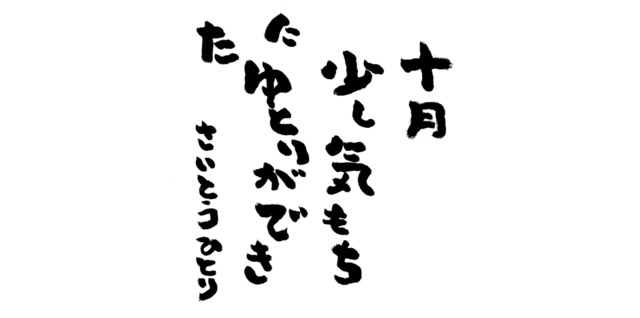 十月
少し気もち
にゆとりができ
た
さいとうひとり